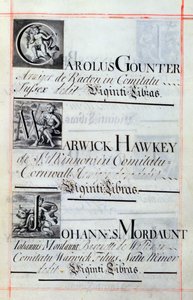 CAROLUS COUNTER
Armiger de Racton in Comitatu
Sussex dedit Viginti Libras.
WARWICK HAWKEY
de Sti Minnow in Comitatu
Cornwall
Viginti Libras
JOHANNES MORDAUNT
Iohannis Mordaunt
Comitatu Warwick Filius Natu Minor
dedit Viginti Libras.